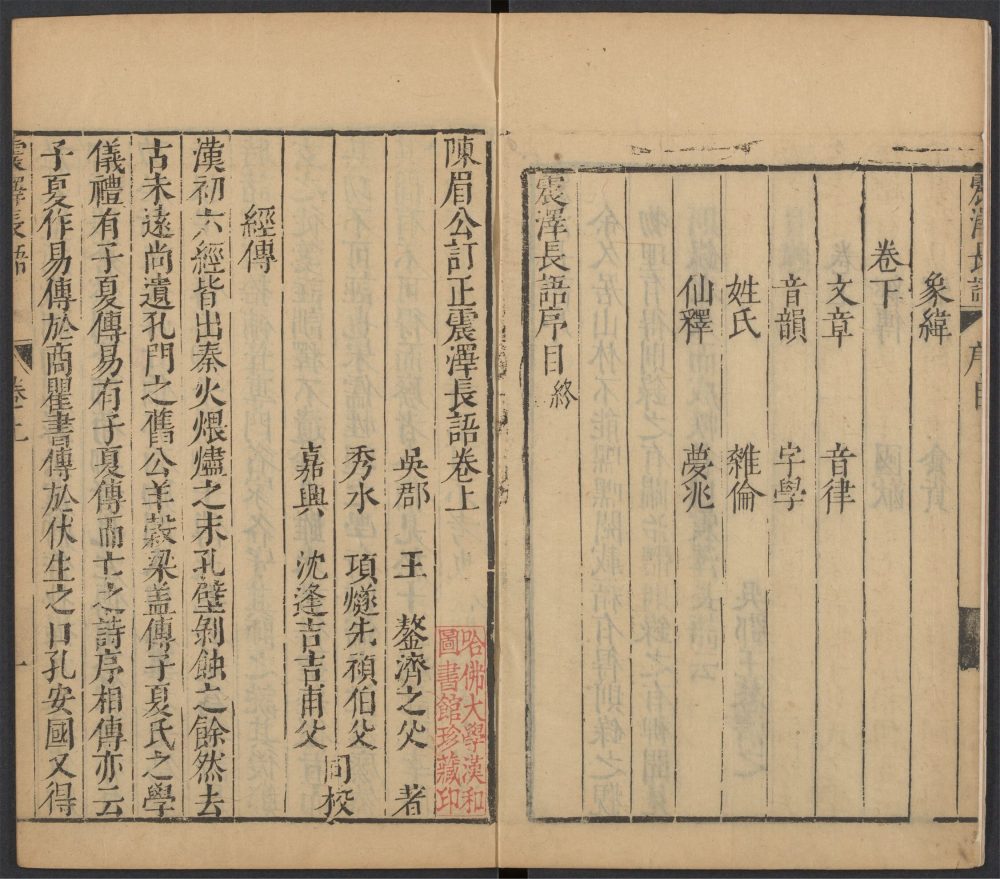 震澤長語 序目
象緯
卷下
文章 音律
音韻 字學
姓氏 雜倫
仙釋 夢兆
震澤長語序目終
陳眉公訂正震澤長語卷上
吳郡 王 鏊濟之父 著
秀水 項燧先禎伯父
嘉興 沈逢吉吉甫父 同校
經傳
漢初六經皆出秦火煨燼之末孔壁剝蝕之餘然去
古未遠尚遺孔門之舊公羊穀梁盖傳子夏氏之學
儀禮有子夏傳易有子夏傳而亡之詩序相傳亦云
子夏作易傳於商瞿書傳於伏生之口孔安國又得
震澤長語 卷上 一
哈佛大學漢和
圖書館珍藏印